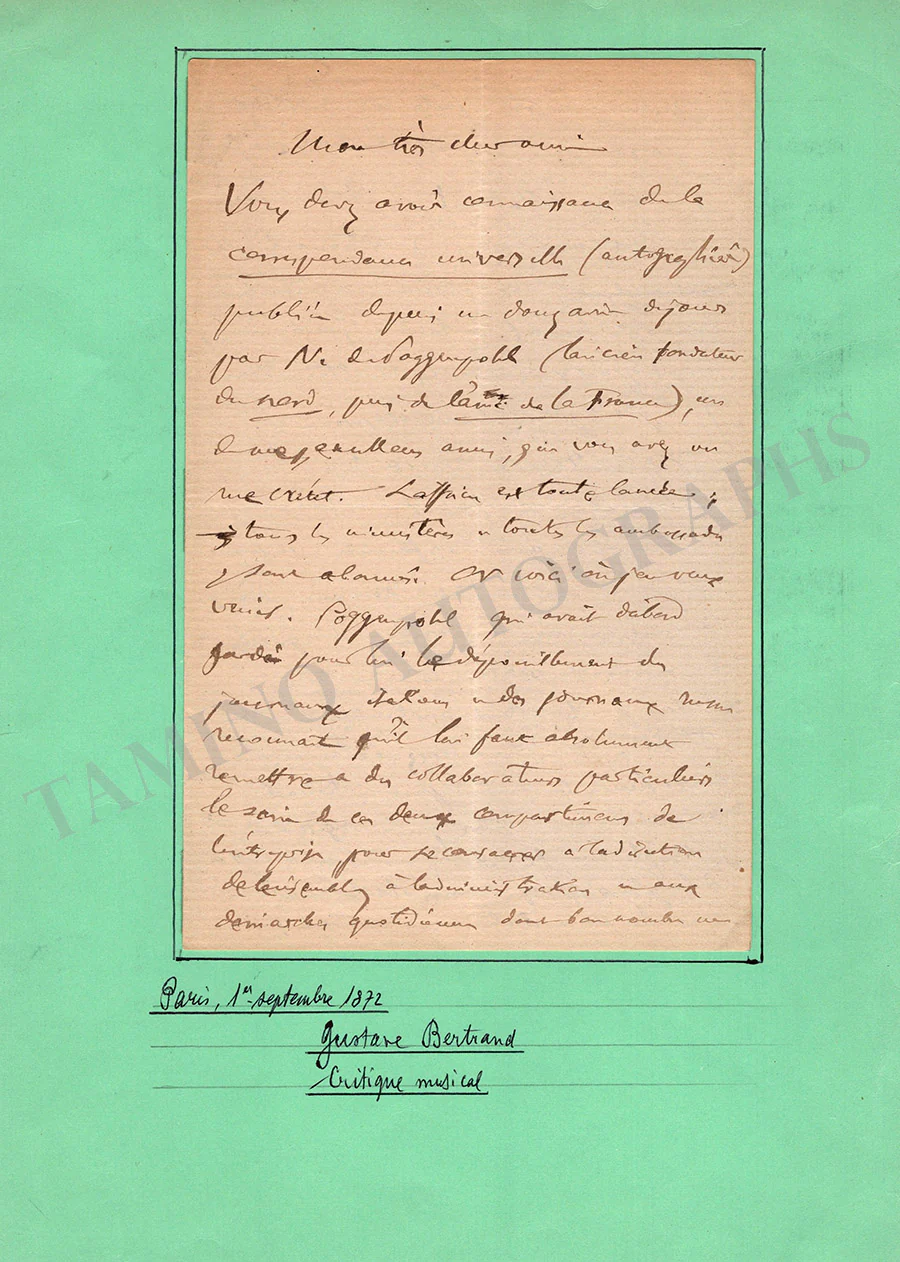 Mon très cher ami
Vous devez avoir connaissance de la
correspondance universelle (autographiée)
publiée depuis une douzaine de jours
par N. de Poggenpohl (l'ancien fondateur
du nord, puis de l'ami de la France), un
de mes meilleurs amis, que vous avez vu
L'affaire est toute lancée;
tous les ministères et toutes les ambassades
y sont abonnés. Or voici où j'en veux
venir. Poggenpohl qui avait d'abord
gardé pour lui le dépouillement des
journaux italiens et des journaux russes
reconnait qu'il lui faut absolument
remettre à des collaborateurs particuliers
le soin de ces deux compartimens de
l'entreprise, pour se consacrer à la direction
de l'ensemble, à l'administration et aux
démarches quotidiennes dont bon nombre
Paris, 1er septembre 1872
Gustave Bertrand
Critique musical
TAMINO AUTOGRAPHS